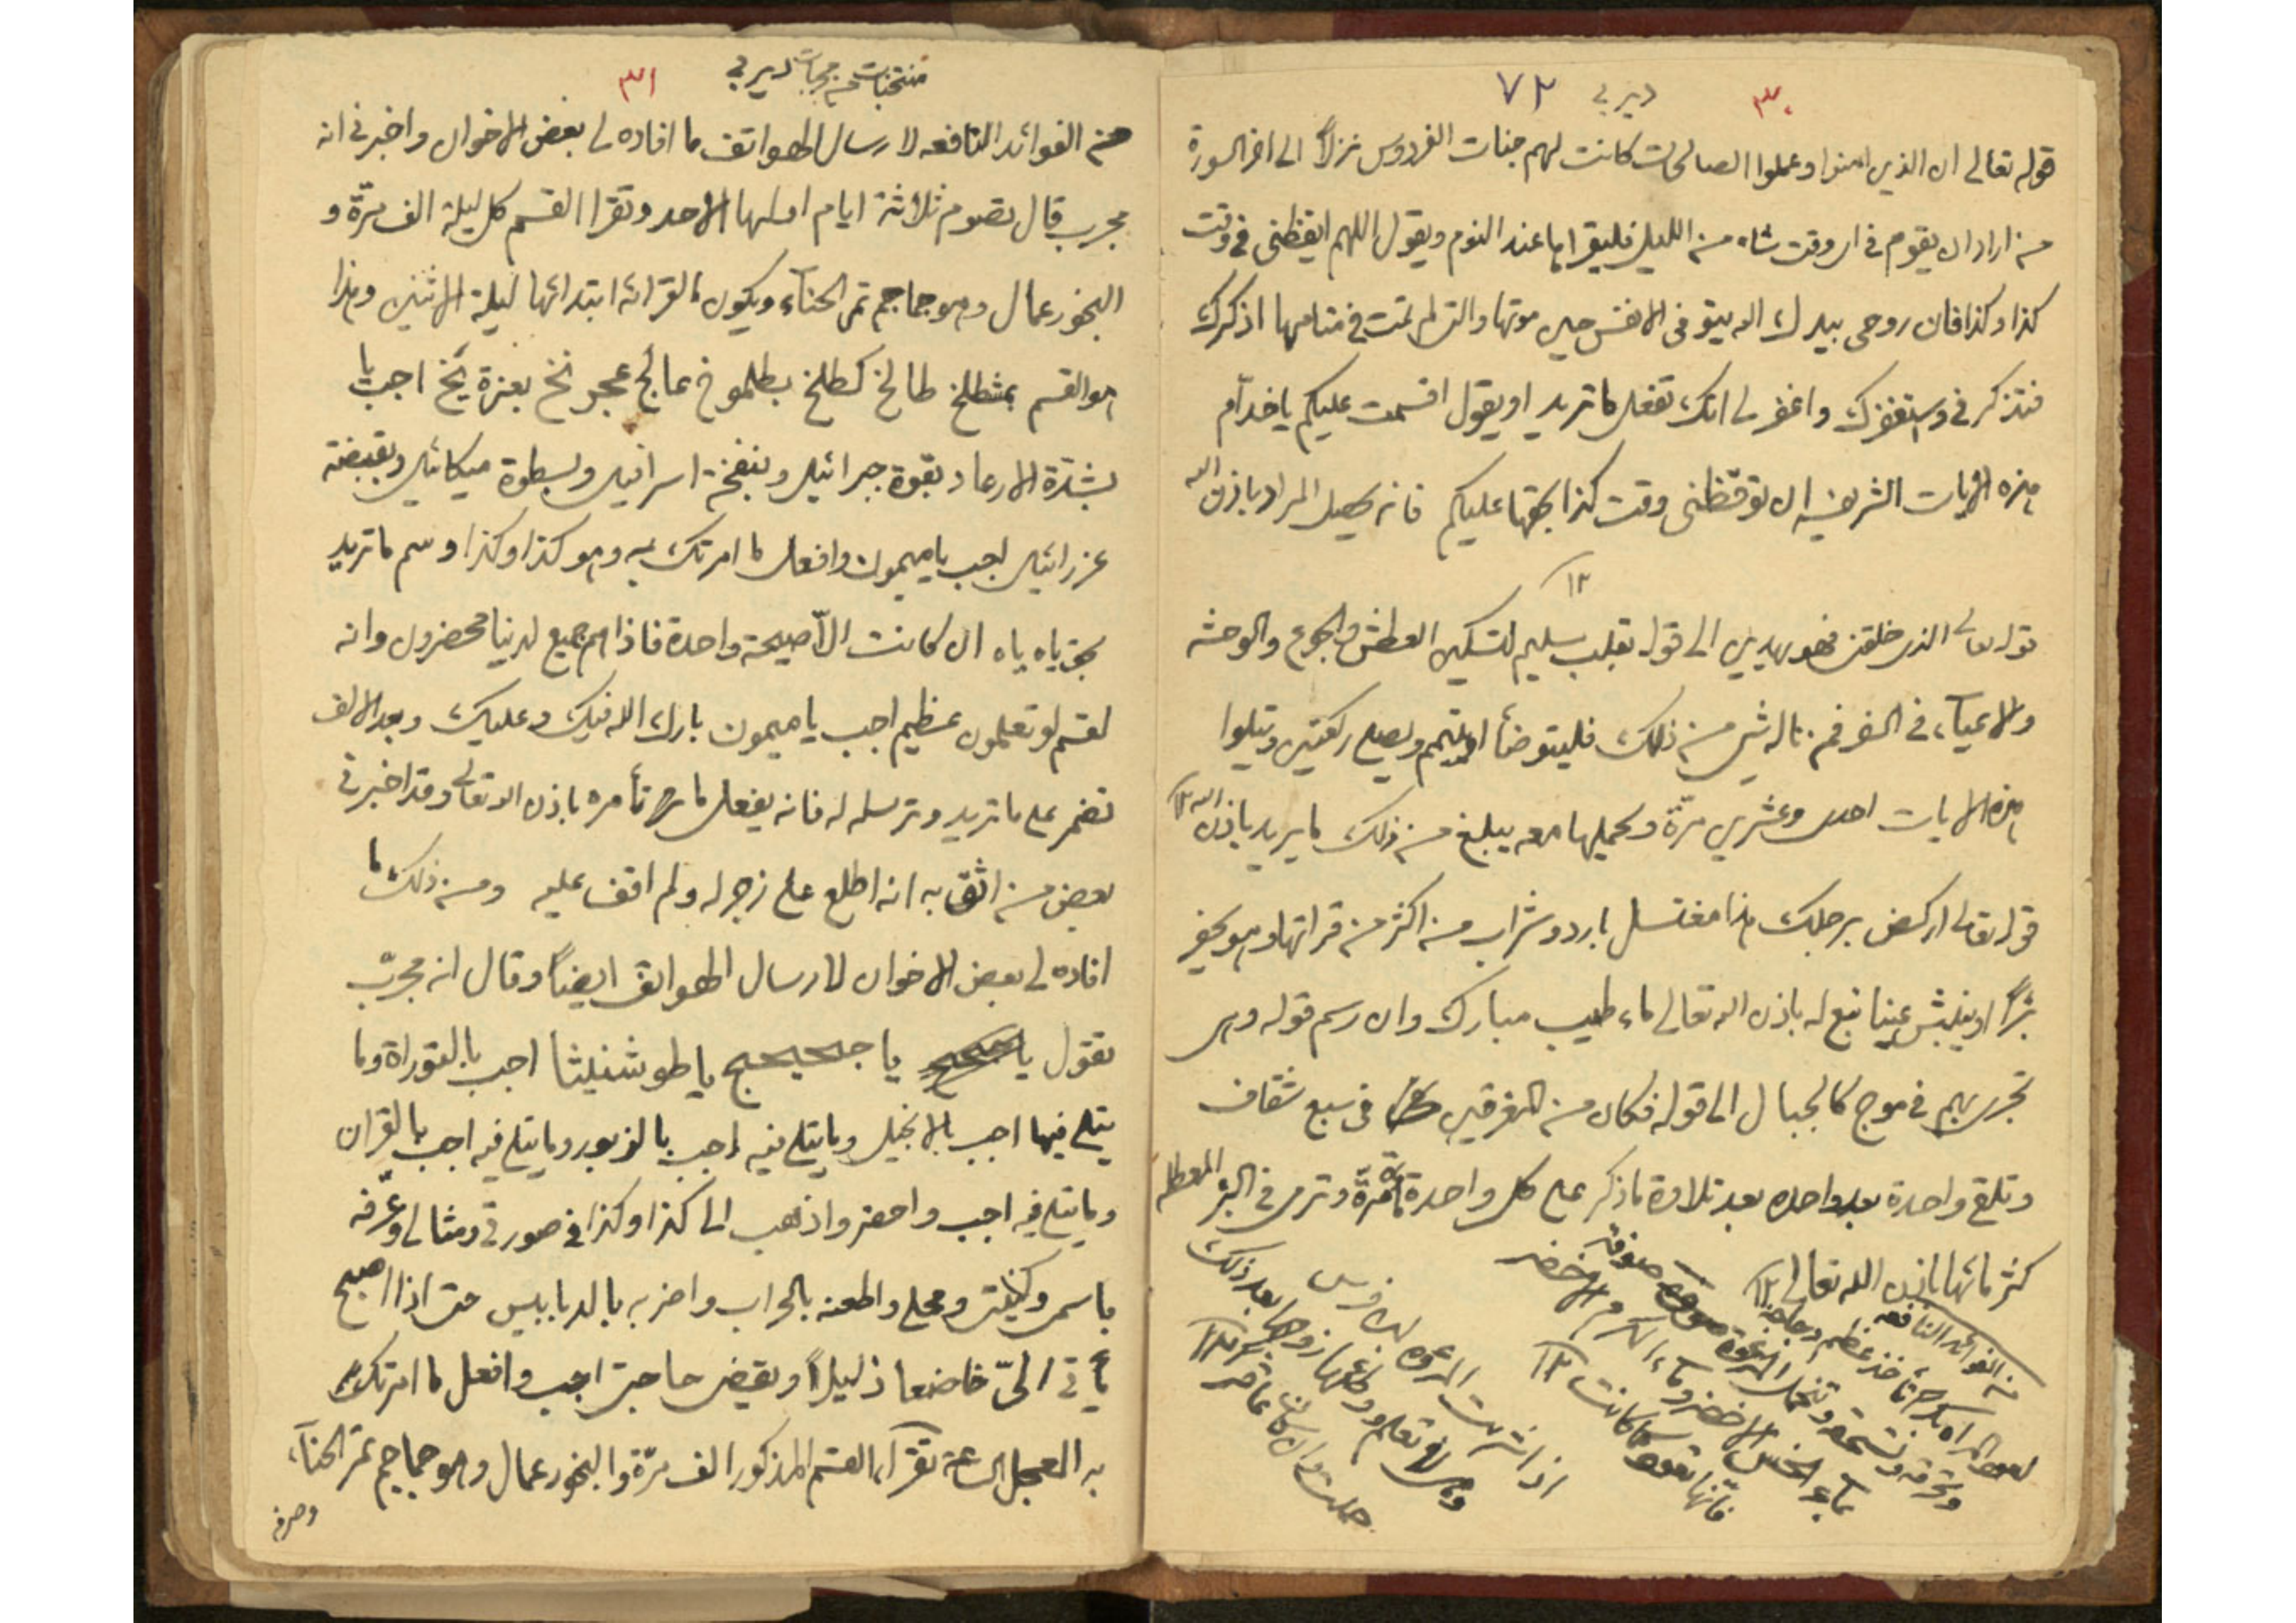 ٣٠ ديربي ٧٢
قوله تعالى ان الذين امنوا وعملوا الصالحات كانت لهم جنات الفردوس نزلاً الى اخر السورة
من اراد ان يقوم في اى وقت شاء من الليل فليقراها عند النوم ويقول اللهم ايقظنى فى وقت
كذا وكذا فان روحى بيدك الله يتوفى الانفس حين موتها والتى لم تمت فى منامها اذكرك
فتذكرنى واستغفرك واغفر لى انك تفعل ما تريد او يقول اقسمت عليكم يا خدّام
هذه الايات الشريفه ان توقظنى وقت كذا بحقها عليكم فانه يحصل المراد باذن الله
١٢
قوله تعالى الذى خلقنى فهو يهدين الى قوله بقلب سليم لتسكين العطش والجوع والوحشه
والاعيآء فى السفر فمن ناله شئ من ذلك فليتوضأ او يتيمم ويصلى ركعتين ويتلوا
هذه الايات احدى وعشرين مرّة ويحملها معه يبلغ من ذلك ما يريد باذن الله ١٢
قوله تعالى اركض برجلك هذا مغتسل بارد وشراب من اكثر من قرائتها وهو يحفر
بئراً او ينبش عينا نبع له باذن الله تعالى ماء طيب مبارك وان رسم قوله وهى
تجرى بهم فى موج كالجبال الى قوله فكان من المغرقين فى سبع شقاف
وتلقى واحدة بعد واحده بعد تلاوة ما ذكر على كل واحدة مرّة وترمى فى البئر المعطلة
كثر مائها باذن الله تعالى ١٢
من الفوائد النافعه
تأخذ عظم دجاجة
وتحرقه وتسحقه وتتحمل المرءة صوفة
بمآء الخس الاخضر ومآء الكرم الاخضر
فانّها تعود كما كانت ١٢
اذا شربت المرءه لبن فرس
وهى لا تعلم وجامعها زوجها بعد ذلك
حملت وان كانت عاقرا ١٢
منتخبات من مجربات ديربي ٣١
من الفوائد النافعه لارسال الهواتف ما افاده لى بعض الاخوان واخبرنى انه
مجرب قال تصوم ثلاثة ايام اولها الاحد وتقرا القسم كل ليلة الف مرّة و
البخور عمال وهو جماجم تمر الحنآء ويكون القرائه ابتدائها ليلة الاثنين وهذا
هو القسم بمشطلخ طالخ كطلخ بطلموخ عالج عجر نخ بعزة يَخ اجب يا
بشدّة الارعاد بقوة جبرائيل وبنفخة اسرافيل وبسطوة ميكائيل وبقبضة
عزرائيل اجب يا ميمون وافعل ما امرتك به وهو كذا وكذا وسم ما تريد
بحق ياه ياه ان كانت الاّ صيحة واحدة فاذا هم جميع لدينا محضرون وانه
لقسم لو تعلمون عظيم اجب يا ميمون بارك الله فيك وعليك وبعد الالف
تضمر على ما تريد وترسله له فانه يفعل ما تأمره باذن الله تعالى وقد اخبرنى
بعض من اثق به انه اطلع على زجر له ولم اقف عليه ومن ذلك ما
افاده لى بعض الاخوان لارسال الهواتف ايضاً وقال انه مجربّ
تقول يا يا يا طوشنليثا اجب بالتوراة وما
يتلى فيها اجب بالانجيل وما يتلى فيه اجب بالزبور وما يتلى فيه اجب بالقران
وما يتلى فيه اجب واحضر واذهب الى كذا وكذا فى صورتى ومثالى وعرّفه
باسمى وكنيتى ومحلى واطعنه بالحراب واضربه بالدبابيس حتى اذا اصبح
يأتى الىّ خاضعا ذليلاً ويقضى حاجتى اجب وافعل ما امرتك
به العجل الساعة تقرآء القسم المذكور الف مرّة والبخور عمال وهو جماجم تمر الحنآء
وصرفه